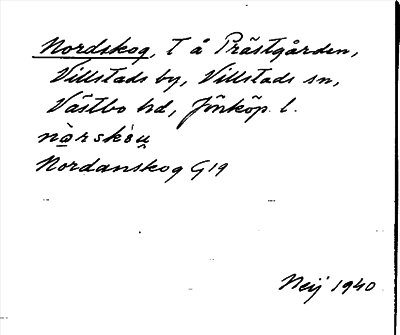 Nordskog, T å Prästgården,
Villstads by, Villstads sn,
Västbo hd, Jönköp. l.
nòrskὲu̯
Nordanskog G19
Neij 1940